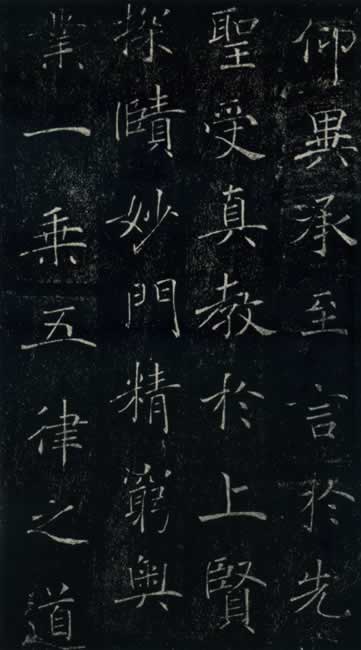 仰異承至言於先
聖受真教於上賢
探賾妙門精窮奧
業一乘五律之道